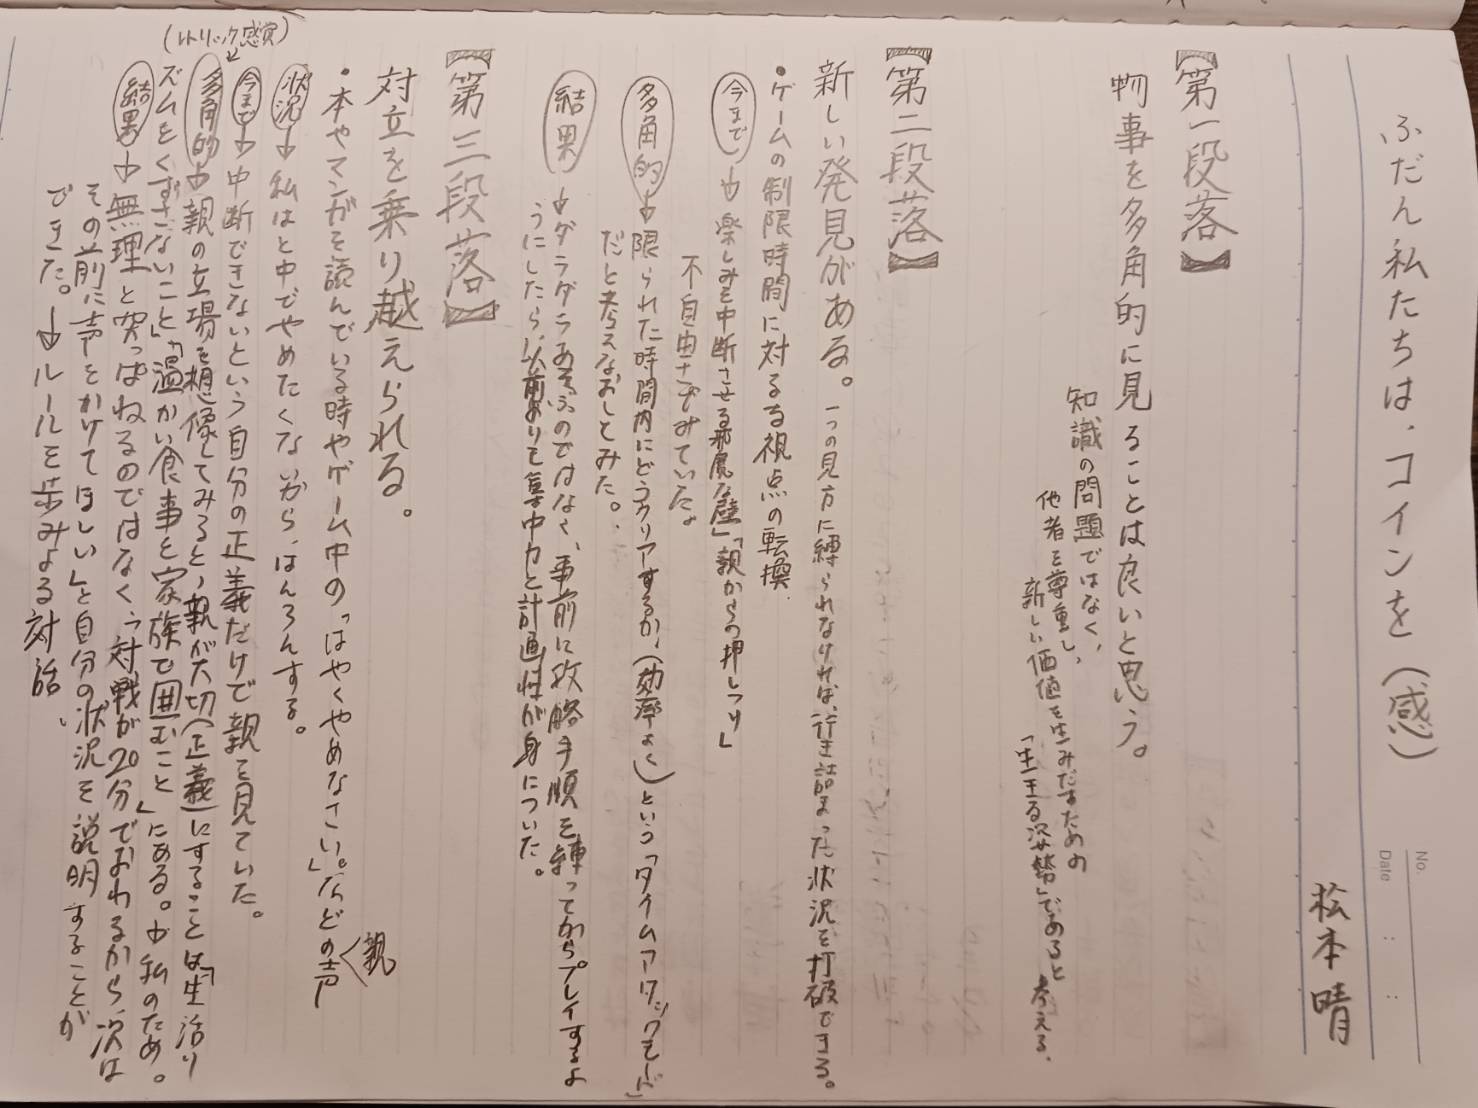 ふだん私たちは、コインを(感)
No.
Date : :
松本晴
【第一段落】
物事を多角的に見ることは良いと思う。
知識の問題ではなく、
他者を尊重し、
新しい価値を生みだすための
「生きる姿勢」であると
考える、
【第二段落】
新しい発見がある。一つの見方に縛られなければ、行き詰まった状況を打破できる。
・ゲームの制限時間に対する視点の転換、
今まで→楽しみを中断させる邪魔な壁」「親からの押しつけ」
不自由さでみていた。
多角的→限られた時間内にどうクリアするか、(効率よく)という「タイムアタックモード」
だと考えなおしてみた。
結果→ダラダラあそぶのではなく、事前に攻略手順を練ってからプレイするよ
うにしたら、以前よりも集中力と計画性が身についた。
【第三段落】
対立を乗り越えられる。
・本やマンガを読んでいる時やゲーム中の「はやくやめなさい。」などの声
親
状況→私はと中でやめたくないから、はんろんする。
(トリック感覚)
今まで→中断できないという自分の正義だけで親を見ていた。
多角的→親の立場を想像してみると、親が大切(正義)にすることは「生活リ
ズムをくずさないこと」「温かい食事を家族で囲むこと」にある。→私のため。
結果→無理と突っぱねるのではなく、「対戦が20分でおわるから、次は
その前に声をかけてほしい」と自分の状況を説明することが
できた。→ルールを歩みよる対話、